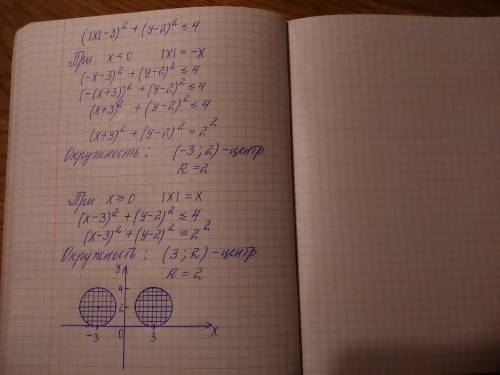 (|x|-3)² + (y-2)² ≤ 4
При x < 0 |x| = -x
(-x-3)² + (y-2)² ≤ 4
(-(x+3))² + (y-2)² ≤ 4
(x+3)² + (y-2)² ≤ 4
(x+3)² + (y-2)² = 2²
Окружность: (-3; 2) - центр
R = 2
При x ≥ 0 |x| = x
(x-3)² + (y-2)² ≤ 4
(x-3)² + (y-2)² = 2²
Окружность: (3; 2) - центр
R = 2
y
4
2
-3 0 3 x